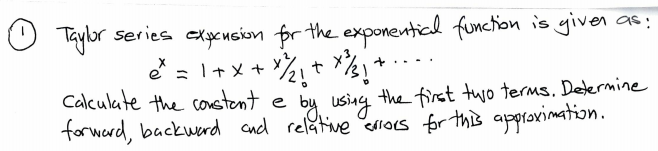 ① Taylor series expension for the exponential function is given as:
eˣ = 1 + x + x²/2! + x³/3! + ....
Calculate the constent e by using the first two terms. Determine
forward, backward and relative errors for this approximation.